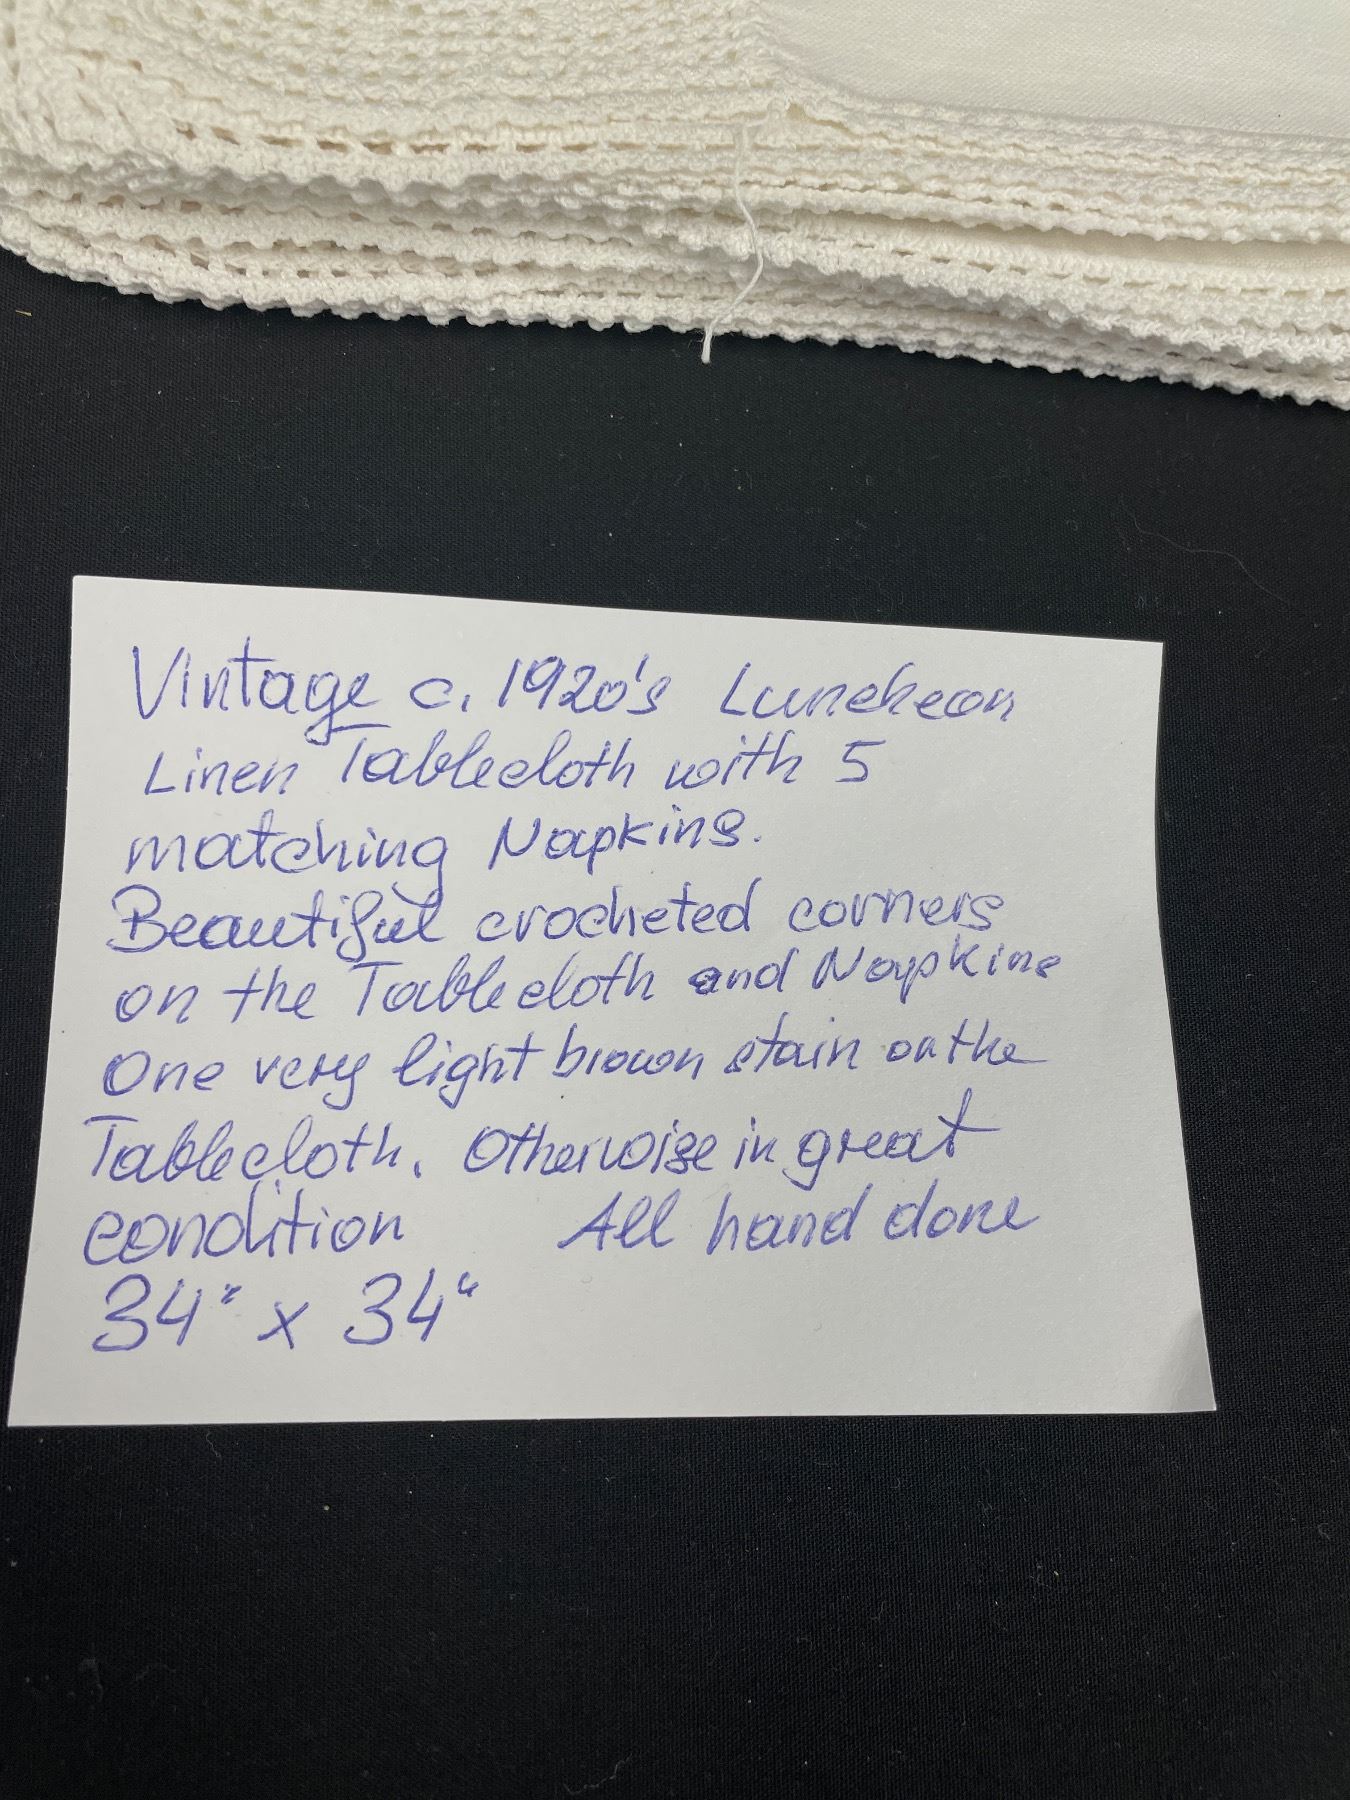 Vintage c. 1920's Luncheon
Linen Tablecloth with 5
matching Napkins.
Beautiful crocheted corners
on the Tablecloth and Napkins
One very light brown stain on the
Tablecloth. Otherwise in great
condition All hand done
34" x 34"